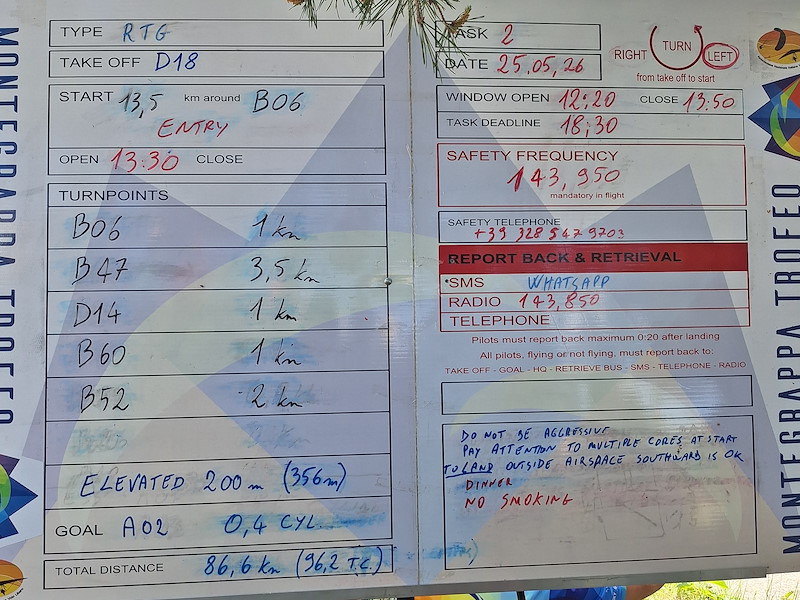 MONTEGRAPPA TROFEO
TYPE RTG
TAKE OFF D18
START 13,5 km around B06
ENTRY
OPEN 13:30 CLOSE
TURNPOINTS
B06 1 km
B47 3,5 km
D14 1 km
B60 1 km
B52 2 km
ELEVATED 200 m (356m)
GOAL A02 0,4 CYL.
TOTAL DISTANCE 86,6 km (96,2 T.C.)
TASK 2
DATE 25.05,26
RIGHT TURN LEFT
from take off to start
WINDOW OPEN 12:20 CLOSE 13:50
TASK DEADLINE 18;30
SAFETY FREQUENCY
143,950
mandatory in flight
SAFETY TELEPHONE
+39 328 547 9703
REPORT BACK & RETRIEVAL
SMS WHATSAPP
RADIO 143,850
TELEPHONE
Pilots must report back maximum 0:20 after landing
All pilots, flying or not flying, must report back to:
TAKE OFF - GOAL - HQ - RETRIEVE BUS - SMS - TELEPHONE - RADIO
DO NOT BE AGGRESSIVE
PAY ATTENTION TO MULTIPLE CORES AT START
TO LAND OUTSIDE AIRSPACE SOUTHWARD IS OK
DINNER
NO SMOKING
MONTEGRAPPA TROFEO